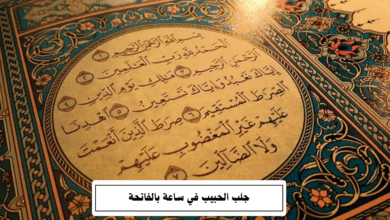 بِسْمِ اللَّهِ الرَّحْمَٰنِ الرَّحِيمِ ①
الْحَمْدُ لِلَّهِ رَبِّ الْعَالَمِينَ ②
الرَّحْمَٰنِ الرَّحِيمِ ③ مَلِكِ يَوْمِ الدِّينِ ④
إِيَّاكَ نَعْبُدُ وَإِيَّاكَ نَسْتَعِينُ ⑤ اهْدِنَا
الصِّرَاطَ الْمُسْتَقِيمَ ⑥ صِرَاطَ الَّذِينَ أَنْعَمْتَ
عَلَيْهِمْ غَيْرِ الْمَغْضُوبِ عَلَيْهِمْ
وَلَا الضَّالِّينَ ⑦
جلب الحبيب في ساعة بالفاتحة